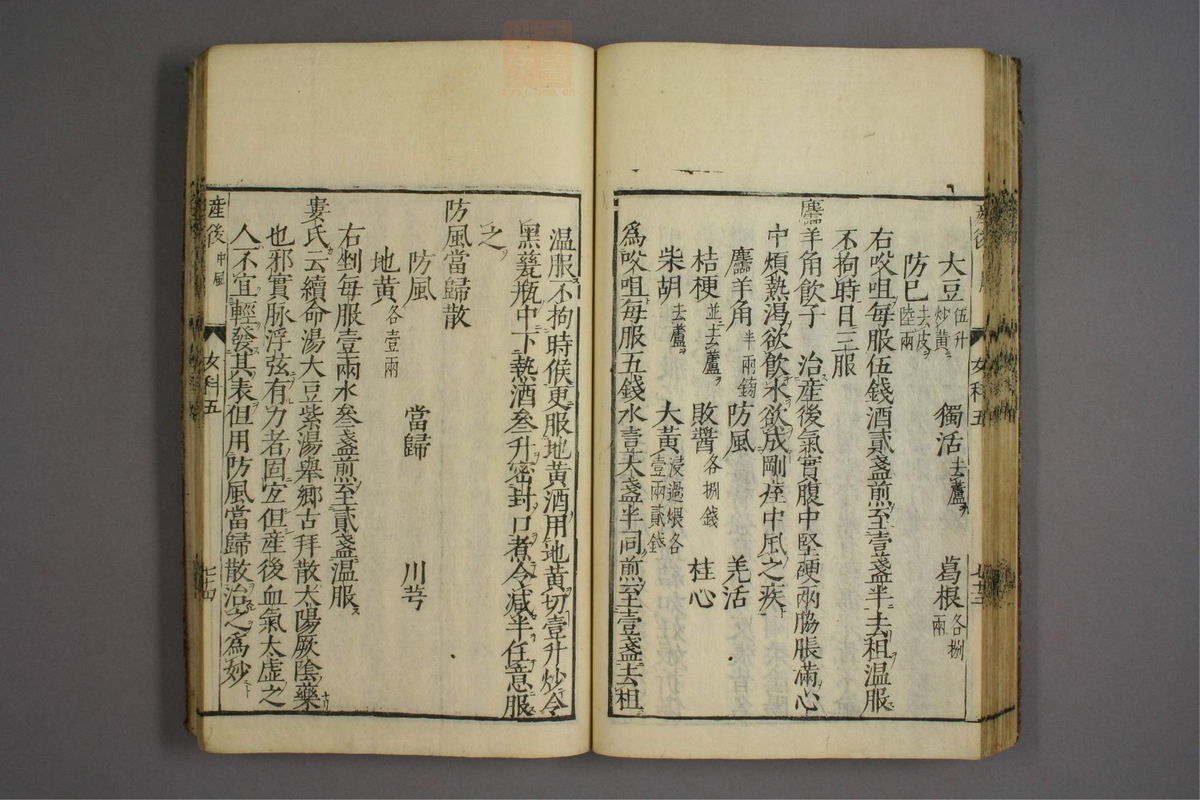 大豆 伍升炒黄 獨活 去蘆 葛根 各捌兩
防已 去皮陸兩
右㕮咀每服伍錢酒貳盞煎至壹盞半去柤温服
不拘時日三服
麢羊角飲子 治產後氣實腹中堅硬兩脇脹滿心
中煩熱渴欲飲水欲成剛痓中風之疾
麢羊角 半兩鎊 防風 羌活
桔梗 並去蘆 敗醬 各捌錢 桂心
柴胡 去蘆 大黄 浸過煨各壹兩貳錢
爲㕮咀每服五錢水壹大盞半同煎至壹盞去柤
温服不拘時候更服地黄酒用地黄切壹升炒令
黑甆瓶中下熱酒叁升密封口煮令減半任意服
之
防風當歸散
防風 當歸 川芎
地黄 各壹兩
右剉每服壹兩水叁盞煎至貳盞温服
婁氏云續命湯大豆紫湯舉鄉古拜散太陽厥陰藥
也邪實脉浮弦有力者固宜但產後血氣太虚之
人不宜輕發其表但用防風當歸散治之爲妙
產後 中風 女科五 七十四